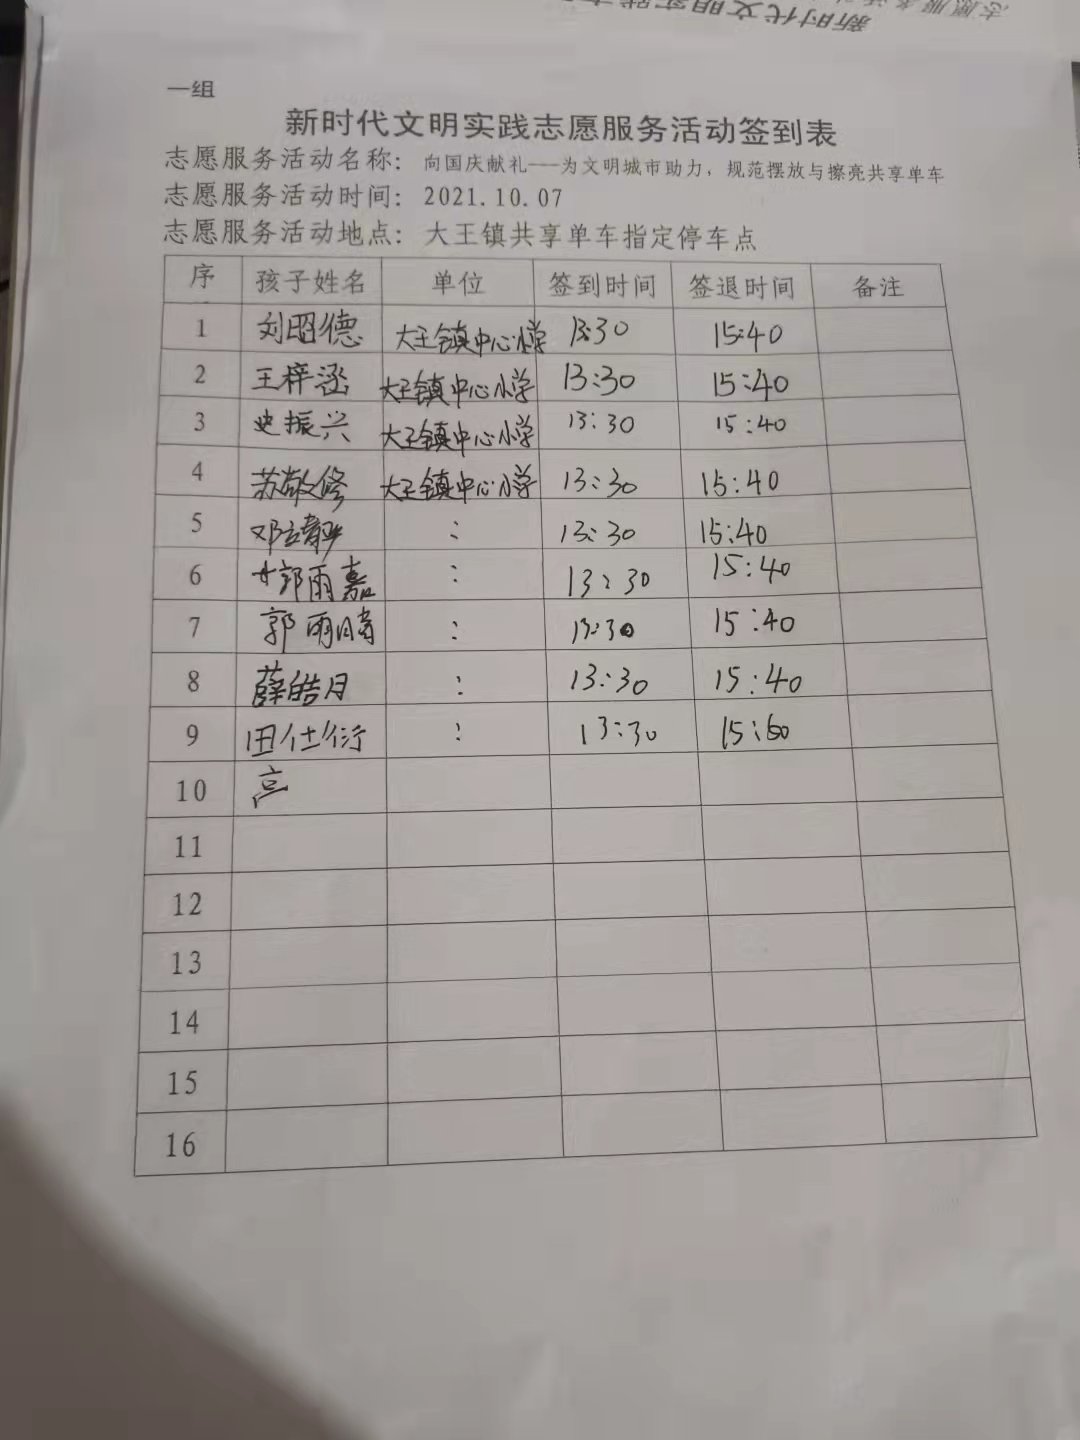 新时代文明实践
志愿服务活
一组
新时代文明实践志愿服务活动签到表
志愿服务活动名称: 向国庆献礼---为文明城市助力, 规范摆放与擦亮共享单车
志愿服务活动时间: 2021.10.07
志愿服务活动地点: 大王镇共享单车指定停车点
序 孩子姓名 单位 签到时间 签退时间 备注
1 刘昭德 大王镇中心小学 13:30 15:40
2 王梓涵 大王镇中心小学 13:30 15:40
3 史振兴 大王镇中心小学 13:30 15:40
4 苏敬修 大王镇中心小学 13:30 15:40
5 邓 : 13:30 15:40
6 郭雨嘉 : 13:30 15:40
7 郭雨晴 : 13:30 15:40
8 薛皓月 : 13:30 15:40
9 田仕衍 : 13:30 15:
10
11
12
13
14
15
16